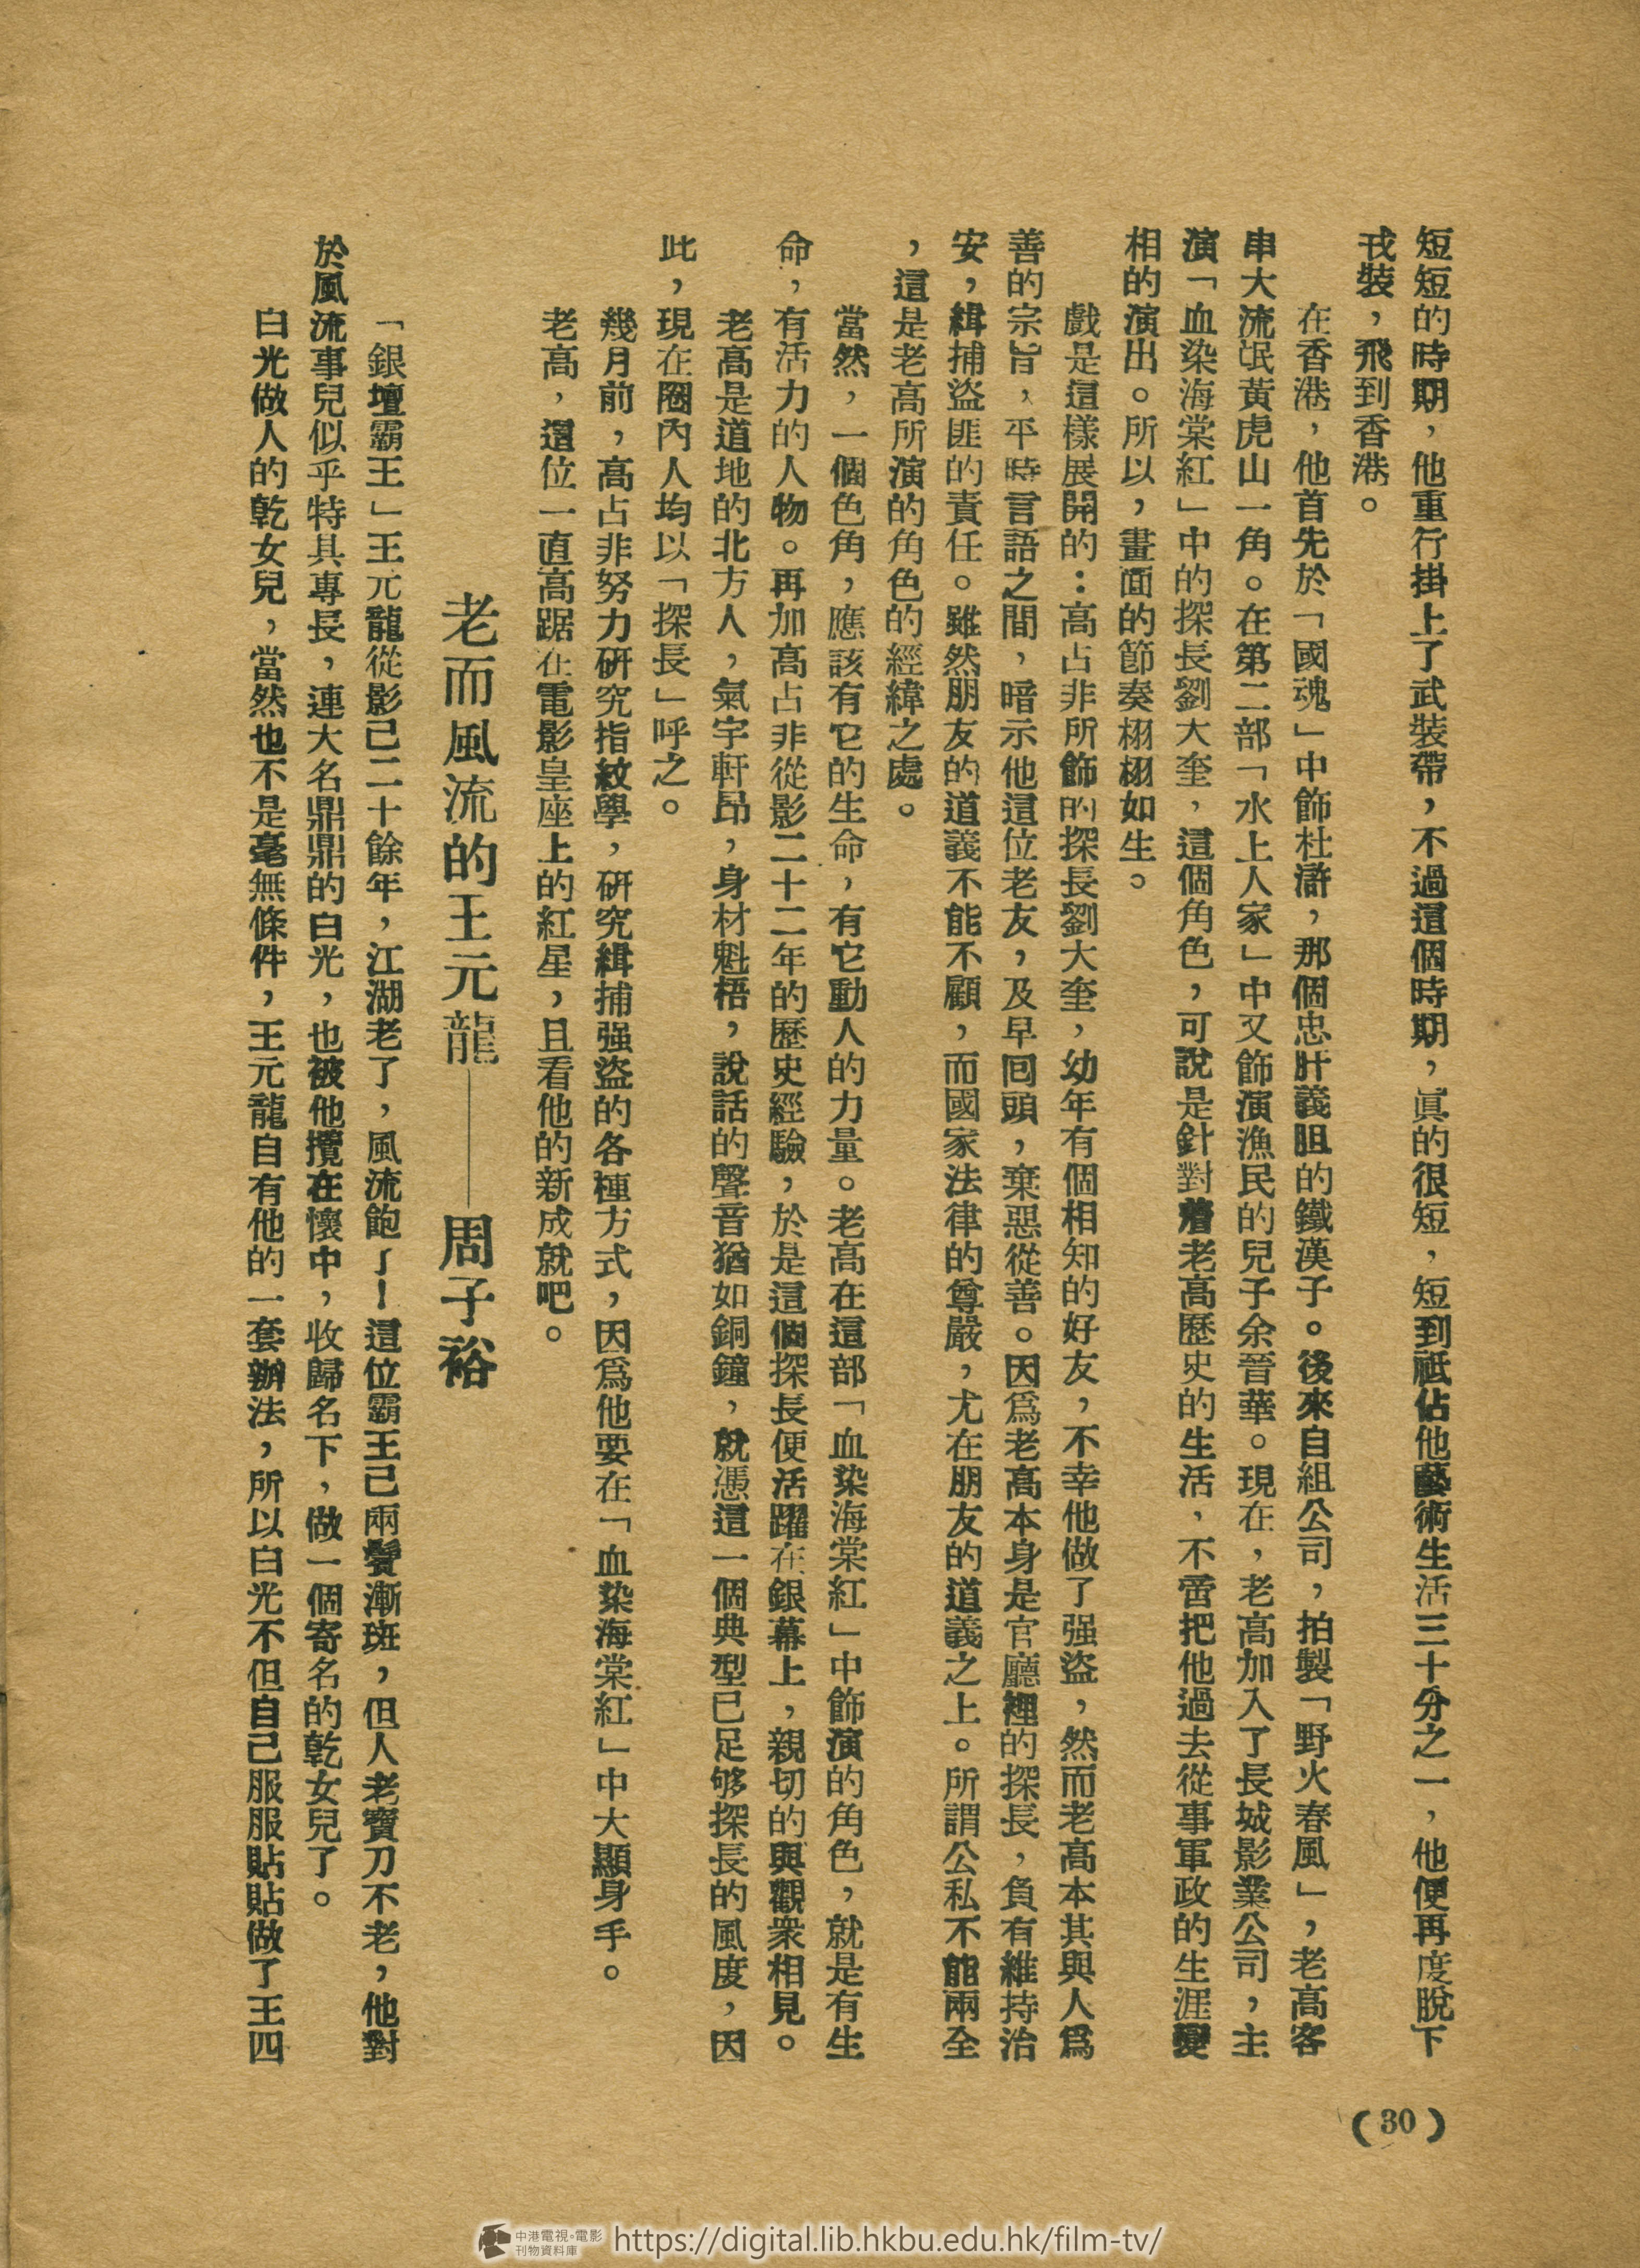 短短的時期，他重行掛上了武裝帶，不過這個時期，眞的很短，短到祗佔他藝術生活三十分之一，他便再度脫下
戎裝，飛到香港。
在香港，他首先於「國魂」中飾杜滸，那個忠肝義胆的鐵漢子。後來自組公司，拍製「野火春風」，老高客
串大流氓黃虎山一角。在第二部「水上人家」中又飾演漁民的兒子余晉華。現在，老高加入了長城影業公司，主
演「血染海棠紅」中的探長劉大奎，這個角色，可說是針對着老高歷史的生活，不啻把他過去從事軍政的生涯變
相的演出。所以，畫面的節奏栩栩如生。
戲是這樣展開的：高占非所飾的探長劉大奎，幼年有個相知的好友，不幸他做了强盜，然而老高本其與人爲
善的宗旨，平時言語之間，暗示他這位老友，及早回頭，棄惡從善。因爲老高本身是官廳裡的探長，負有維持治
安，緝捕盜匪的責任。雖然朋友的道義不能不顧，而國家法律的尊嚴，尤在朋友的道義之上。所謂公私不能兩全
，這是老高所演的角色的經緯之處。
當然，一個色角，應該有它的生命，有它動人的力量。老高在這部「血染海棠紅」中飾演的角色，就是有生
命，有活力的人物。再加高占非從影二十二年的歷史經驗，於是這個探長便活躍在銀幕上，親切的與觀衆相見。
老高是道地的北方人，氣宇軒昂，身材魁梧，說話的聲音猶如銅鐘，就憑這一個典型已足够探長的風度，因
此，現在圈內人均以「探長」呼之。
幾月前，高占非努力研究指紋學，研究緝捕强盜的各種方式，因爲他要在「血染海棠紅」中大顯身手。
老高，這位一直高踞在電影皇座上的紅星，且看他的新成就吧。
老而風流的王元龍——周子裕
「銀壇霸王」王元龍從影已二十餘年，江湖老了，風流飽了！這位霸王已兩鬢漸斑，但人老寶刀不老，他對
於風流事兒似乎特具專長，連大名鼎鼎的白光，也被他攬在懷中，收歸名下，做一個寄名的乾女兒了。
白光做人的乾女兒，當然也不是毫無條件，王元龍自有他的一套辦法，所以白光不但自己服服貼貼做了王四
(30)
中港電視。電影
刊物資料庫
https://digital.lib.hkbu.edu.hk/film-tv/